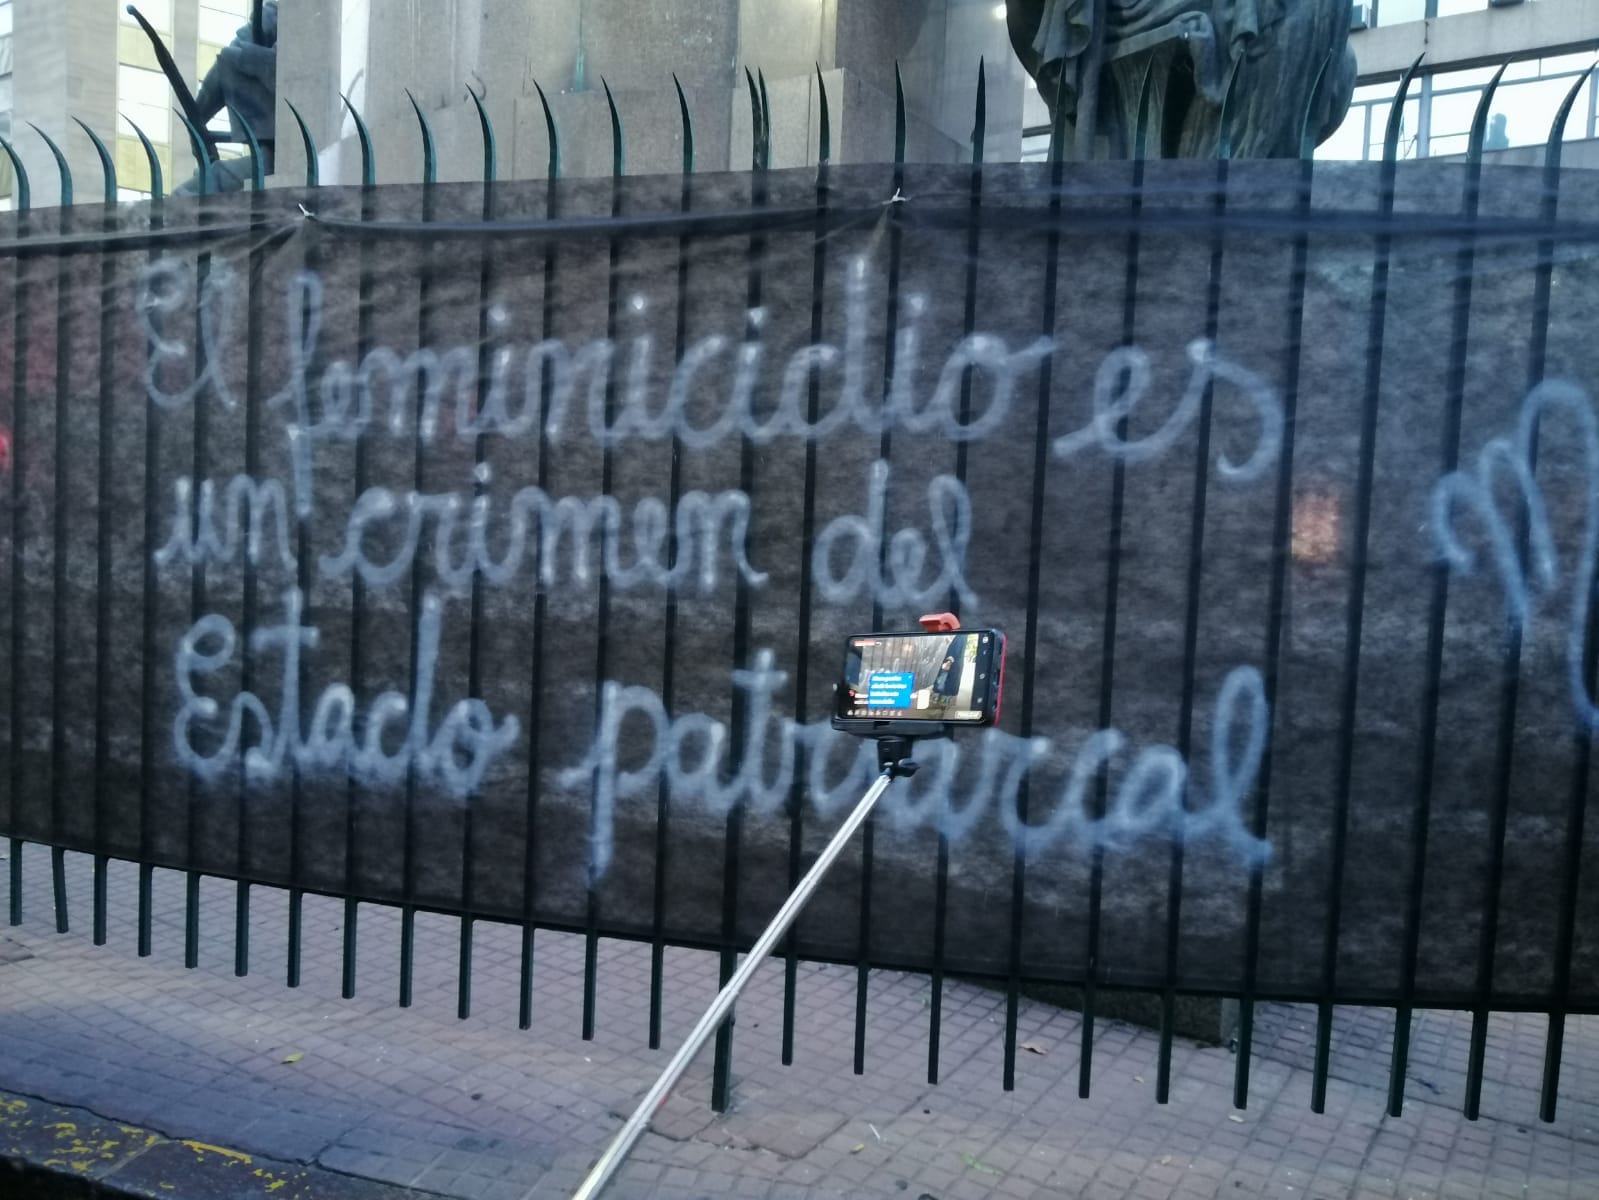 El feminicidio es
un crimen del
Estado patriarcal